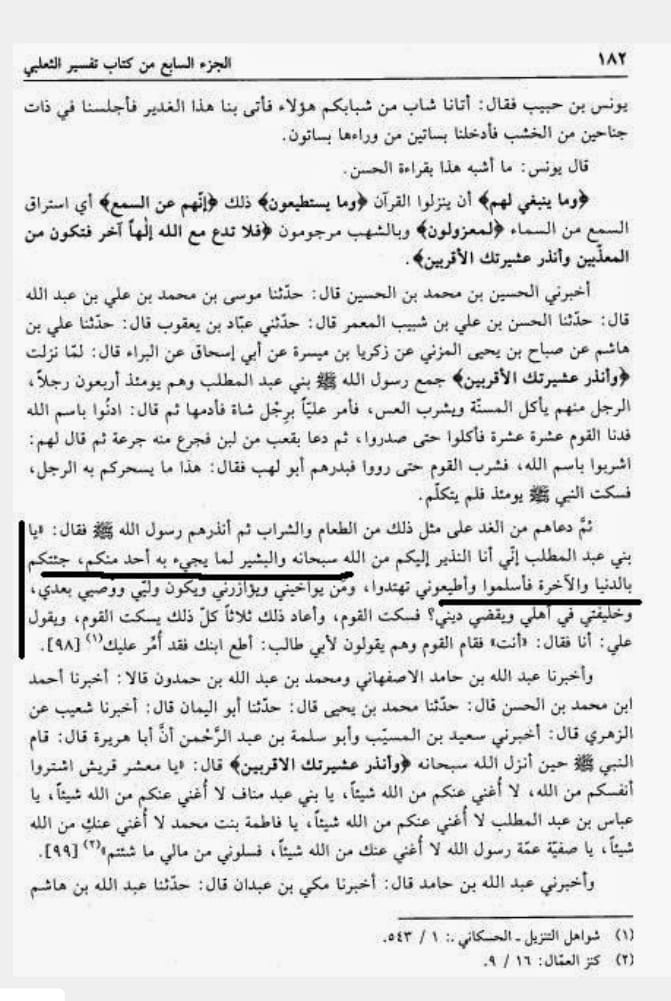 ١٨٢
الجزء السابع من كتاب تفسير الثعلبي
يونس بن حبيب فقال: أتانا شاب من شبابكم هؤلاء فأتى بنا هذا الغدير فأجلسنا في ذات
جناحين من الخشب فأدخلنا بساتين من وراءها بساتون.
قال يونس: ما أشبه هذا بقراءة الحسن.
﴿وما ينبغي لهم﴾ أن ينزلوا القرآن ﴿وما يستطيعون﴾ ذلك ﴿إنّهم عن السمع﴾ أي استراق
السمع من السماء ﴿لمعزولون﴾ وبالشهب مرجومون ﴿فلا تدع مع الله إلٰهاً آخر فتكون من
المعذّبين وأنذر عشيرتك الأقربين﴾.
أخبرني الحسين بن محمد بن الحسين قال: حدّثنا موسى بن محمد بن علي بن عبد الله
قال: حدّثنا الحسن بن علي بن شبيب المعمر قال: حدّثني عبّاد بن يعقوب قال: حدّثنا علي بن
هاشم عن صباح بن يحيى المزني عن زكريا بن ميسرة عن أبي إسحاق عن البراء قال: لمّا نزلت
﴿وأنذر عشيرتك الأقربين﴾ جمع رسول الله ﷺ بني عبد المطلب وهم يومئذ أربعون رجلاً،
الرجل منهم يأكل المسنّة ويشرب العس، فأمر عليّاً برِجْل شاة فأدمها ثم قال: ادنُوا باسم الله
فدنا القوم عشرة عشرة فأكلوا حتى صدروا، ثم دعا بقعب من لبن فجرع منه جرعة ثم قال لهم:
اشربوا باسم الله، فشرب القوم حتى رووا فبدرهم أبو لهب فقال: هذا ما يسحركم به الرجل،
فسكت النبي ﷺ يومئذ فلم يتكلّم.
ثمَّ دعاهم من الغد على مثل ذلك من الطعام والشراب ثم أنذرهم رسول الله ﷺ فقال: «يا
بني عبد المطلب إنّي أنا النذير إليكم من الله سبحانه والبشير لما يجيء به أحد منكم، جئتكم
بالدنيا والآخرة فأسلموا وأطيعوني تهتدوا، ومَن يواخيني ويؤازرني ويكون وليّي ووصيي بعدي،
وخليفتي في أهلي ويقضي ديني؟ فسكت القوم، وأعاد ذلك ثلاثاً كلّ ذلك يسكت القوم، ويقول
علي: أنا فقال: «أنت» فقام القوم وهم يقولون لأبي طالب: أطع ابنك فقد أُمّر عليك(١) [٩٨].
وأخبرنا عبد الله بن حامد الاصفهاني ومحمد بن عبد الله بن حمدون قالا: أخبرنا أحمد
ابن محمد بن الحسن قال: حدّثنا محمد بن يحيى قال: حدّثنا أبو اليمان قال: أخبرنا شعيب عن
الزهري قال: أخبرني سعيد بن المسيّب وأبو سلمة بن عبد الرَّحْمن أنَّ أبا هريرة قال: قام
النبي ﷺ حين أنزل الله سبحانه ﴿وأنذر عشيرتك الاقربين﴾ قال: «يا معشر قريش اشتروا
أنفسكم من الله، لا أُغني عنكم من الله شيئاً، يا بني عبد مناف لا أُغني عنكم من الله شيئاً، يا
عباس بن عبد المطلب لا أُغني عنكم من الله شيئاً، يا فاطمة بنت محمد لا أُغني عنكِ من الله
شيئاً، يا صفيّة عمّة رسول الله لا أُغني عنك من الله شيئاً، فسلوني من مالي ما شئتم»(٢) [٩٩].
وأخبرني عبد الله بن حامد قال: أخبرنا مكي بن عبدان قال: حدّثنا عبد الله بن هاشم
(١) شواهل التنزيل ـ الحسكاني .: ١ / ٥٤٣.
(٢) كنز العمّال: ١٦ / ٩.